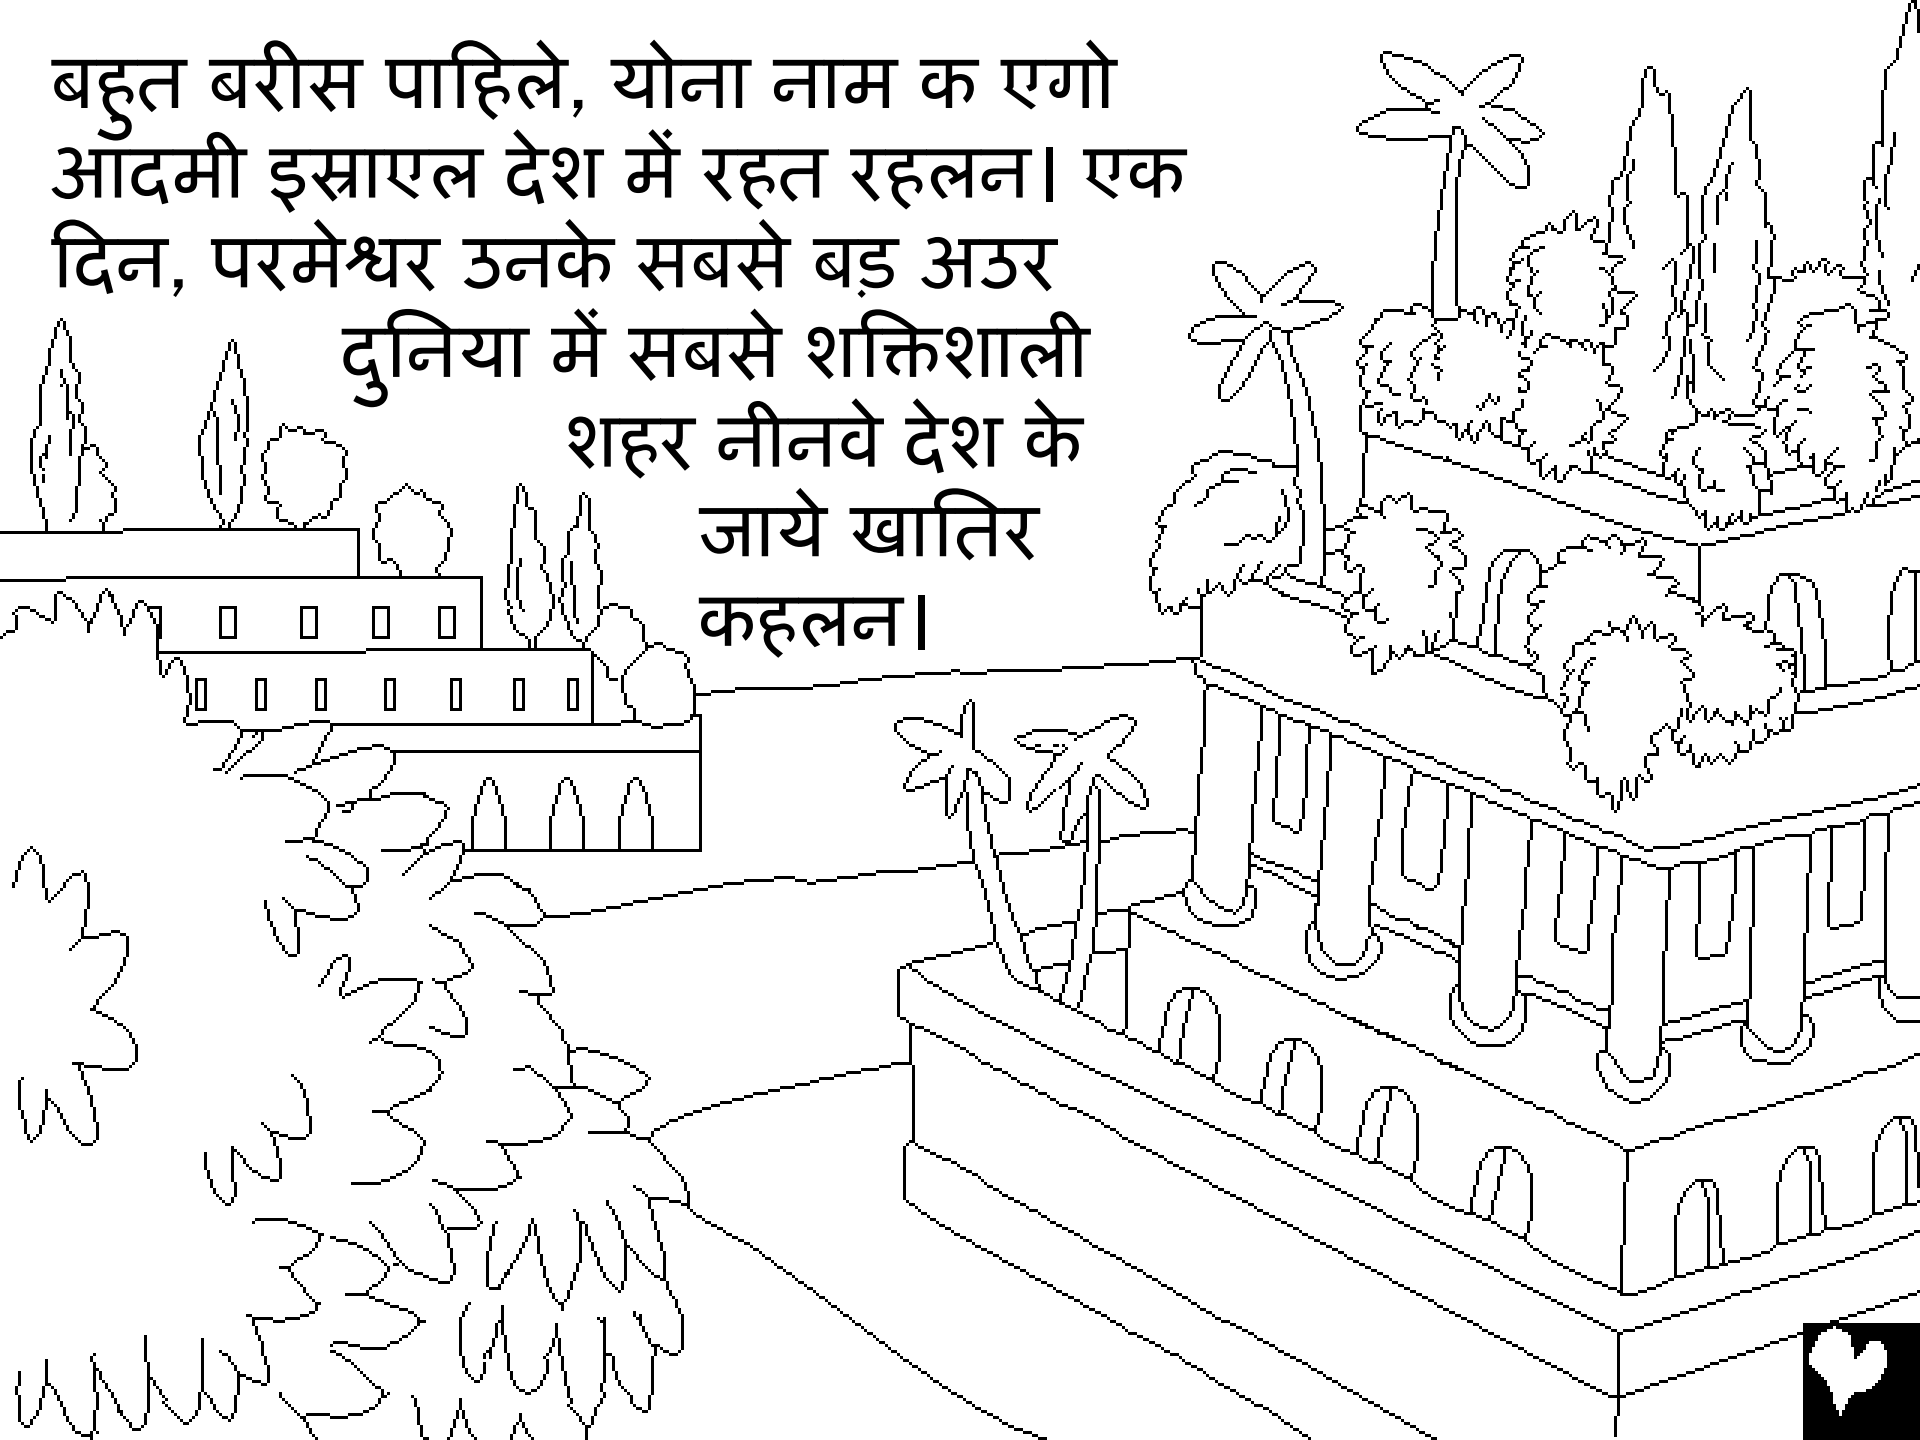 बहुत बरीस पाहिले, योना नाम क एगो
आदमी इस्राएल देश में रहत रहलन। एक
दिन, परमेश्वर उनके सबसे बड़ अउर
दुनिया में सबसे शक्तिशाली
शहर नीनवे देश के
जाये खातिर
कहलन।